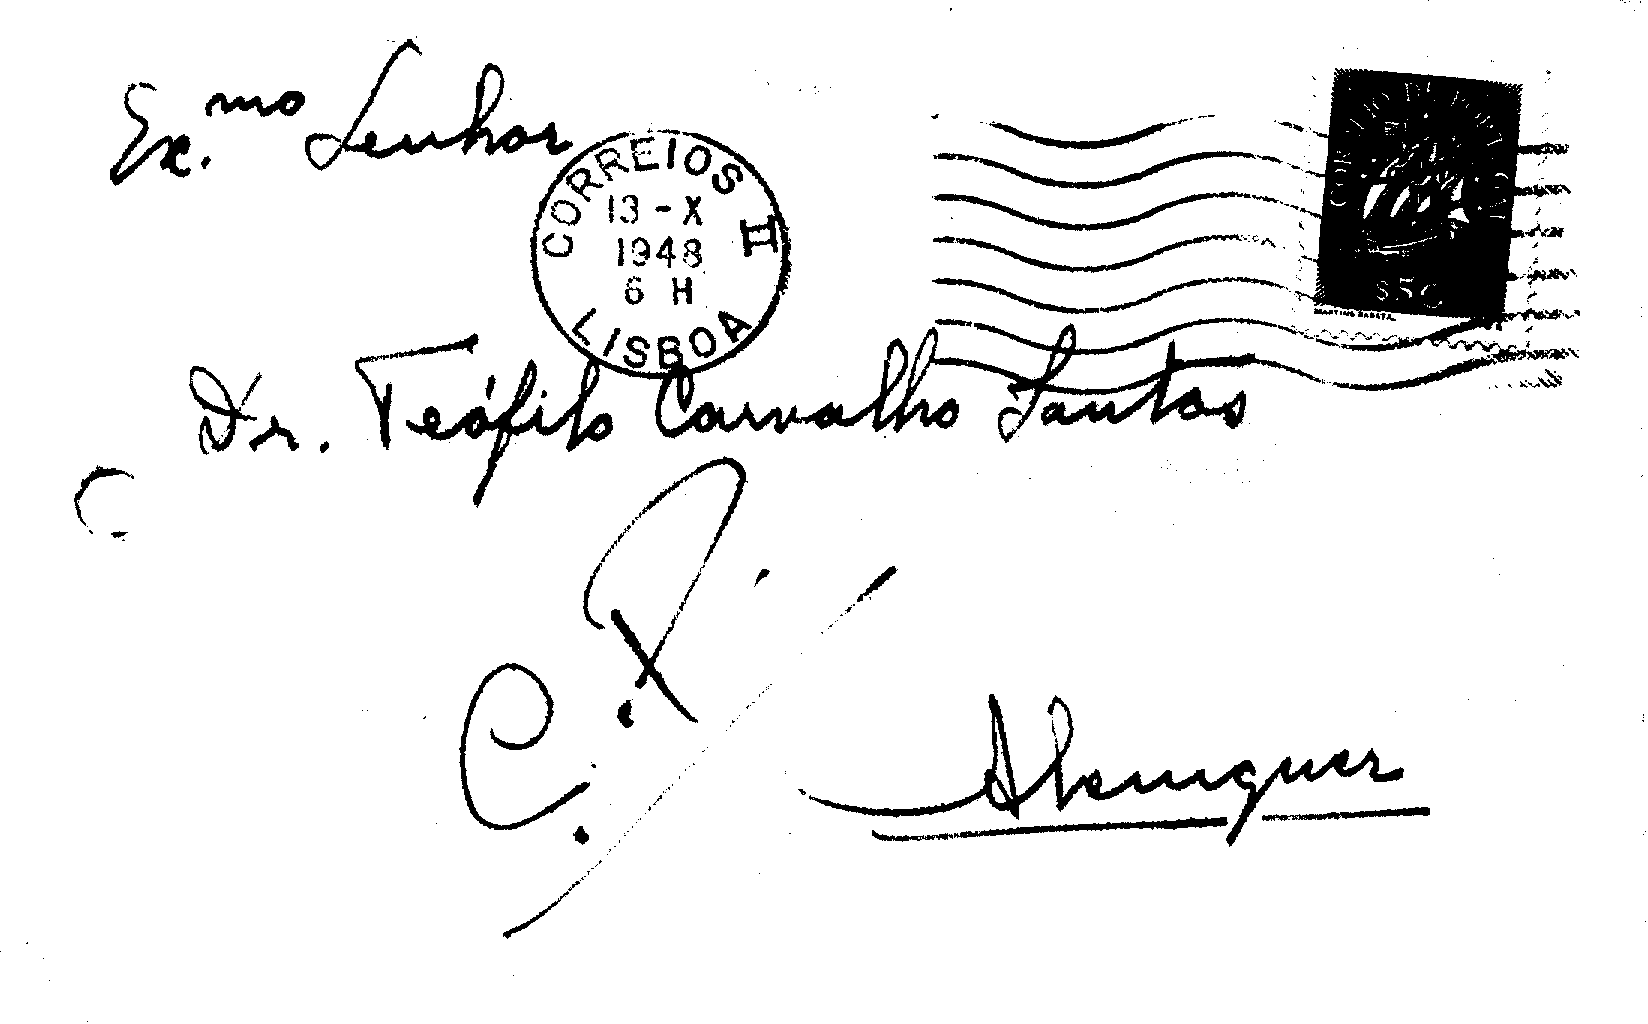 Ex.mo Senhor
CORREIOS II
13-X
1948
6 H
LISBOA
$50
MARTINS BARATA
Dr. Teófilo Carvalho Santos
C. P.
Alenquer